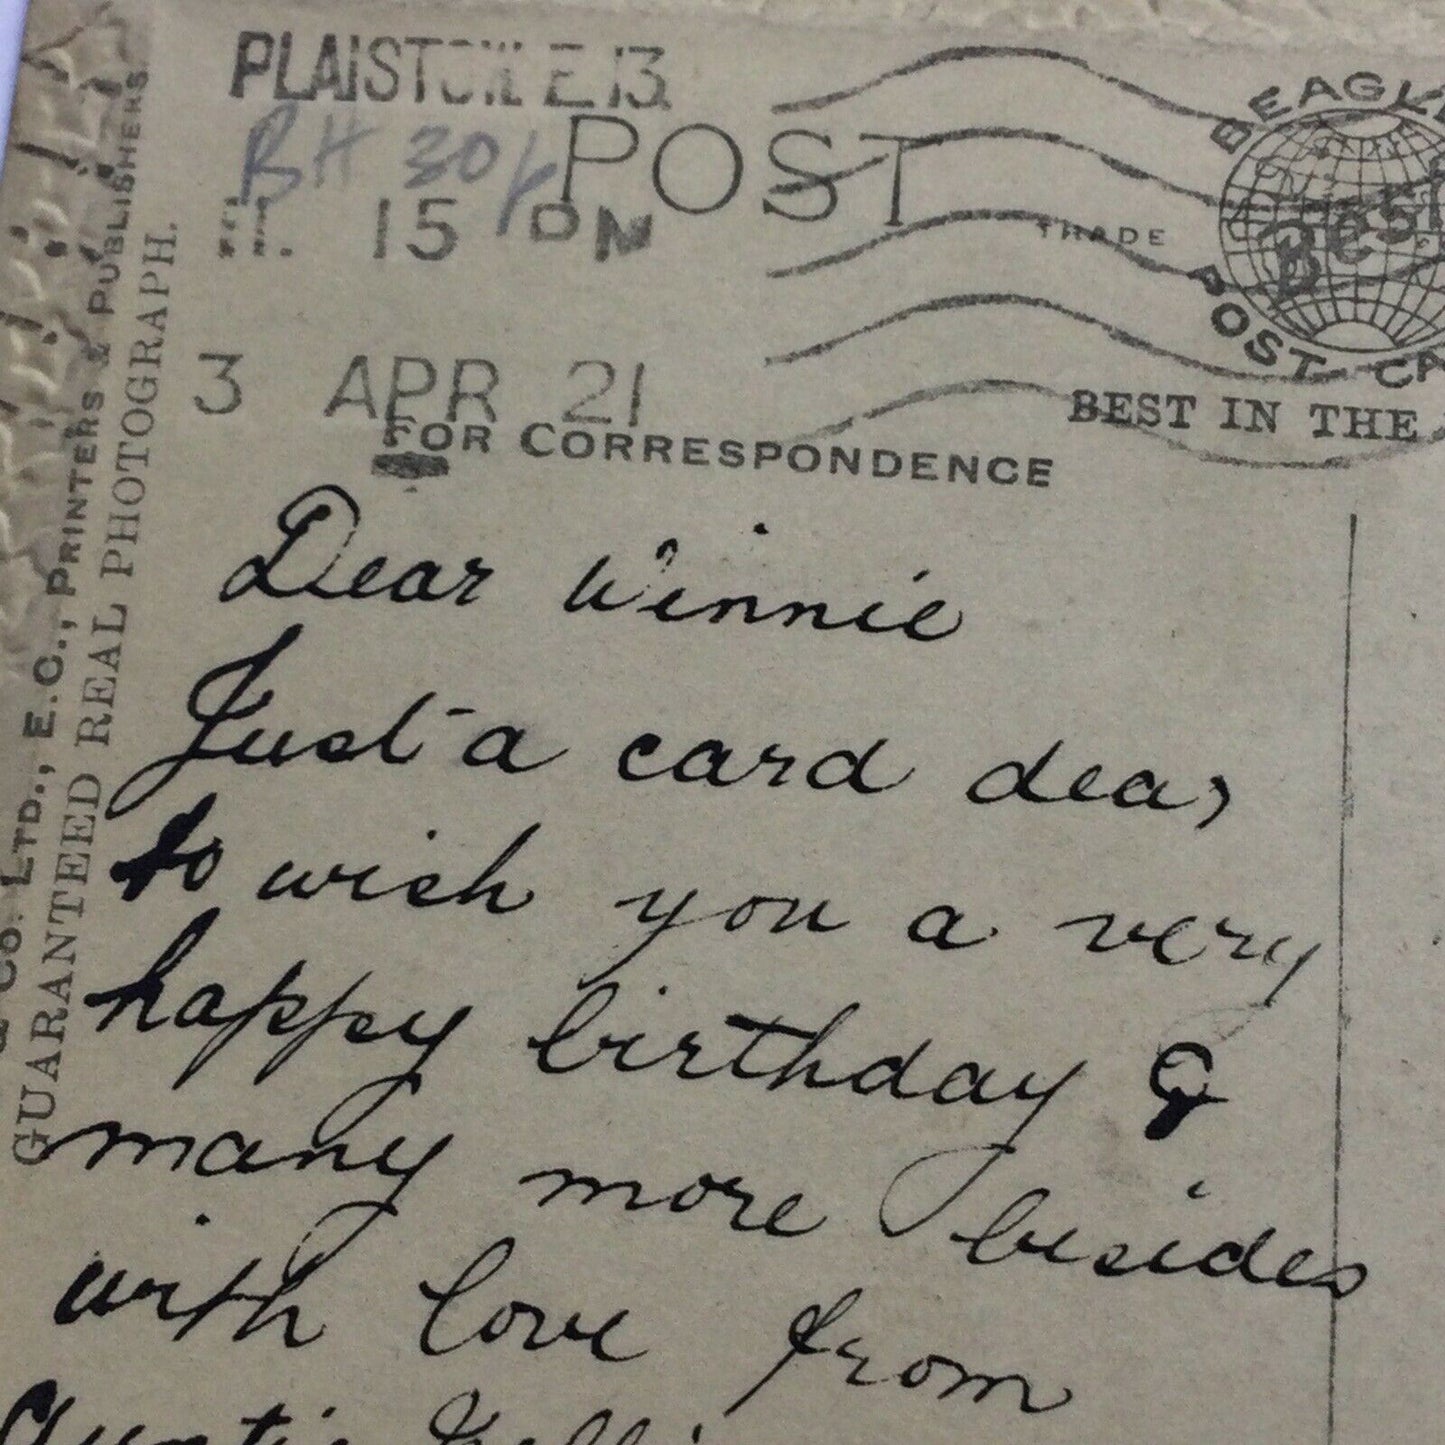 PLAISTOW E 13
BH 30/
15 PM
3 APR 21
POST
TRADE
BEAGLE
BEST
POST CA
BEST IN THE
FOR CORRESPONDENCE
Dear Winnie
Just a card dear
to wish you a very
happy birthday &
many more besides
with love from
Auntie
& CO. LTD., E.C., PRINTERS & PUBLISHERS.
GUARANTEED REAL PHOTOGRAPH.